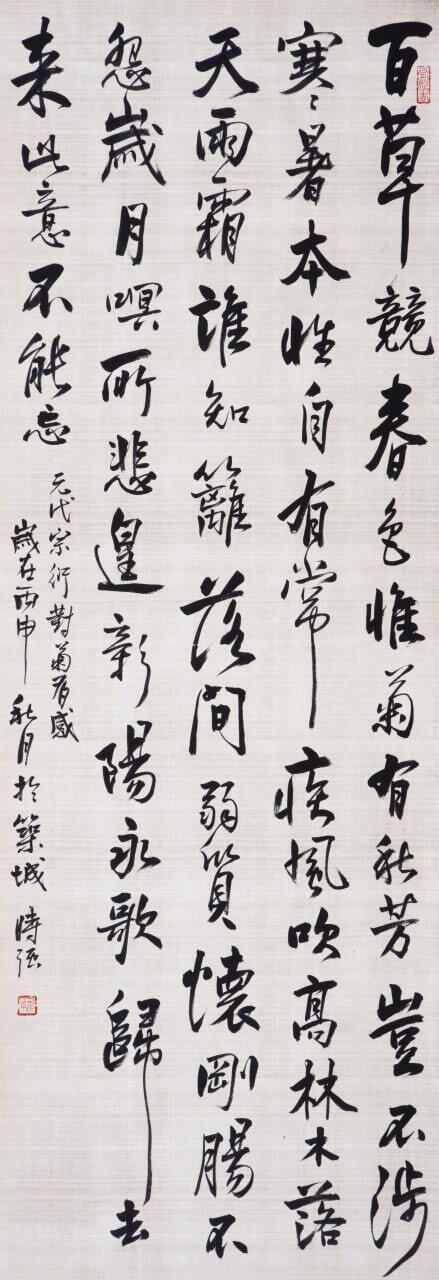 百草競春色惟菊有秋芳豈不涉
寒暑本性自有常疾風吹高林木落
天雨霜誰知籬落間弱質懷剛腸不
怨歲月暝所悲遑新陽永歌歸去
来此意不能忘
元代宗衍對菊有感
歲在丙申秋月於築城